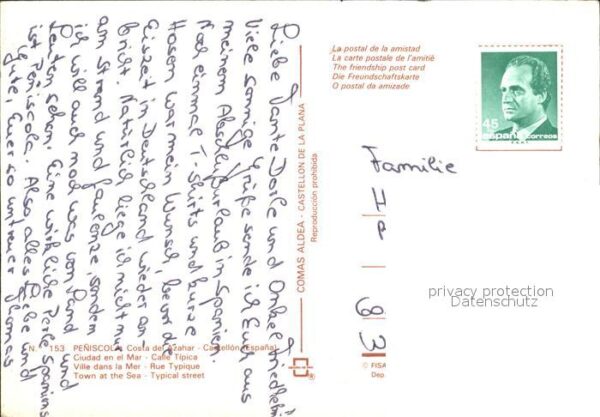 Liebe Tante Dorle und Onkel Friedhelm
Viele sonnige Grüße sende ich Euch aus
meinem Abschlußurlaub in Spanien.
Noch einmal T-Shirts und kurze
Hosen war mein Wunsch, bevor die
Eiszeit in Deutschland wieder an-
bricht. Natürlich liege ich nicht nur
am Strand und faulenze, sondern
ich will auch noch was von Land und
Leuten sehen. Eine wirkliche Perle Spaniens
ist Peñiscola. Also alles Liebe und
Gute, Euer so untreuer Thomas
N.° 153 PEÑISCOLA Costa del Azahar - Castellón (España)
Ciudad en el Mar - Calle Típica
Ville dans la Mer - Rue Typique
Town at the Sea - Typical street
COMAS ALDEA - CASTELLON DE LA PLANA
Reproducción prohibida
®
La postal de la amistad
La carte postale de l'amitié
The friendship post card
Die Freundschaftskarte
O postal da amizade
45
españa correos
Familie
63
privacy protection
Datenschutz
© FISA
Dep.